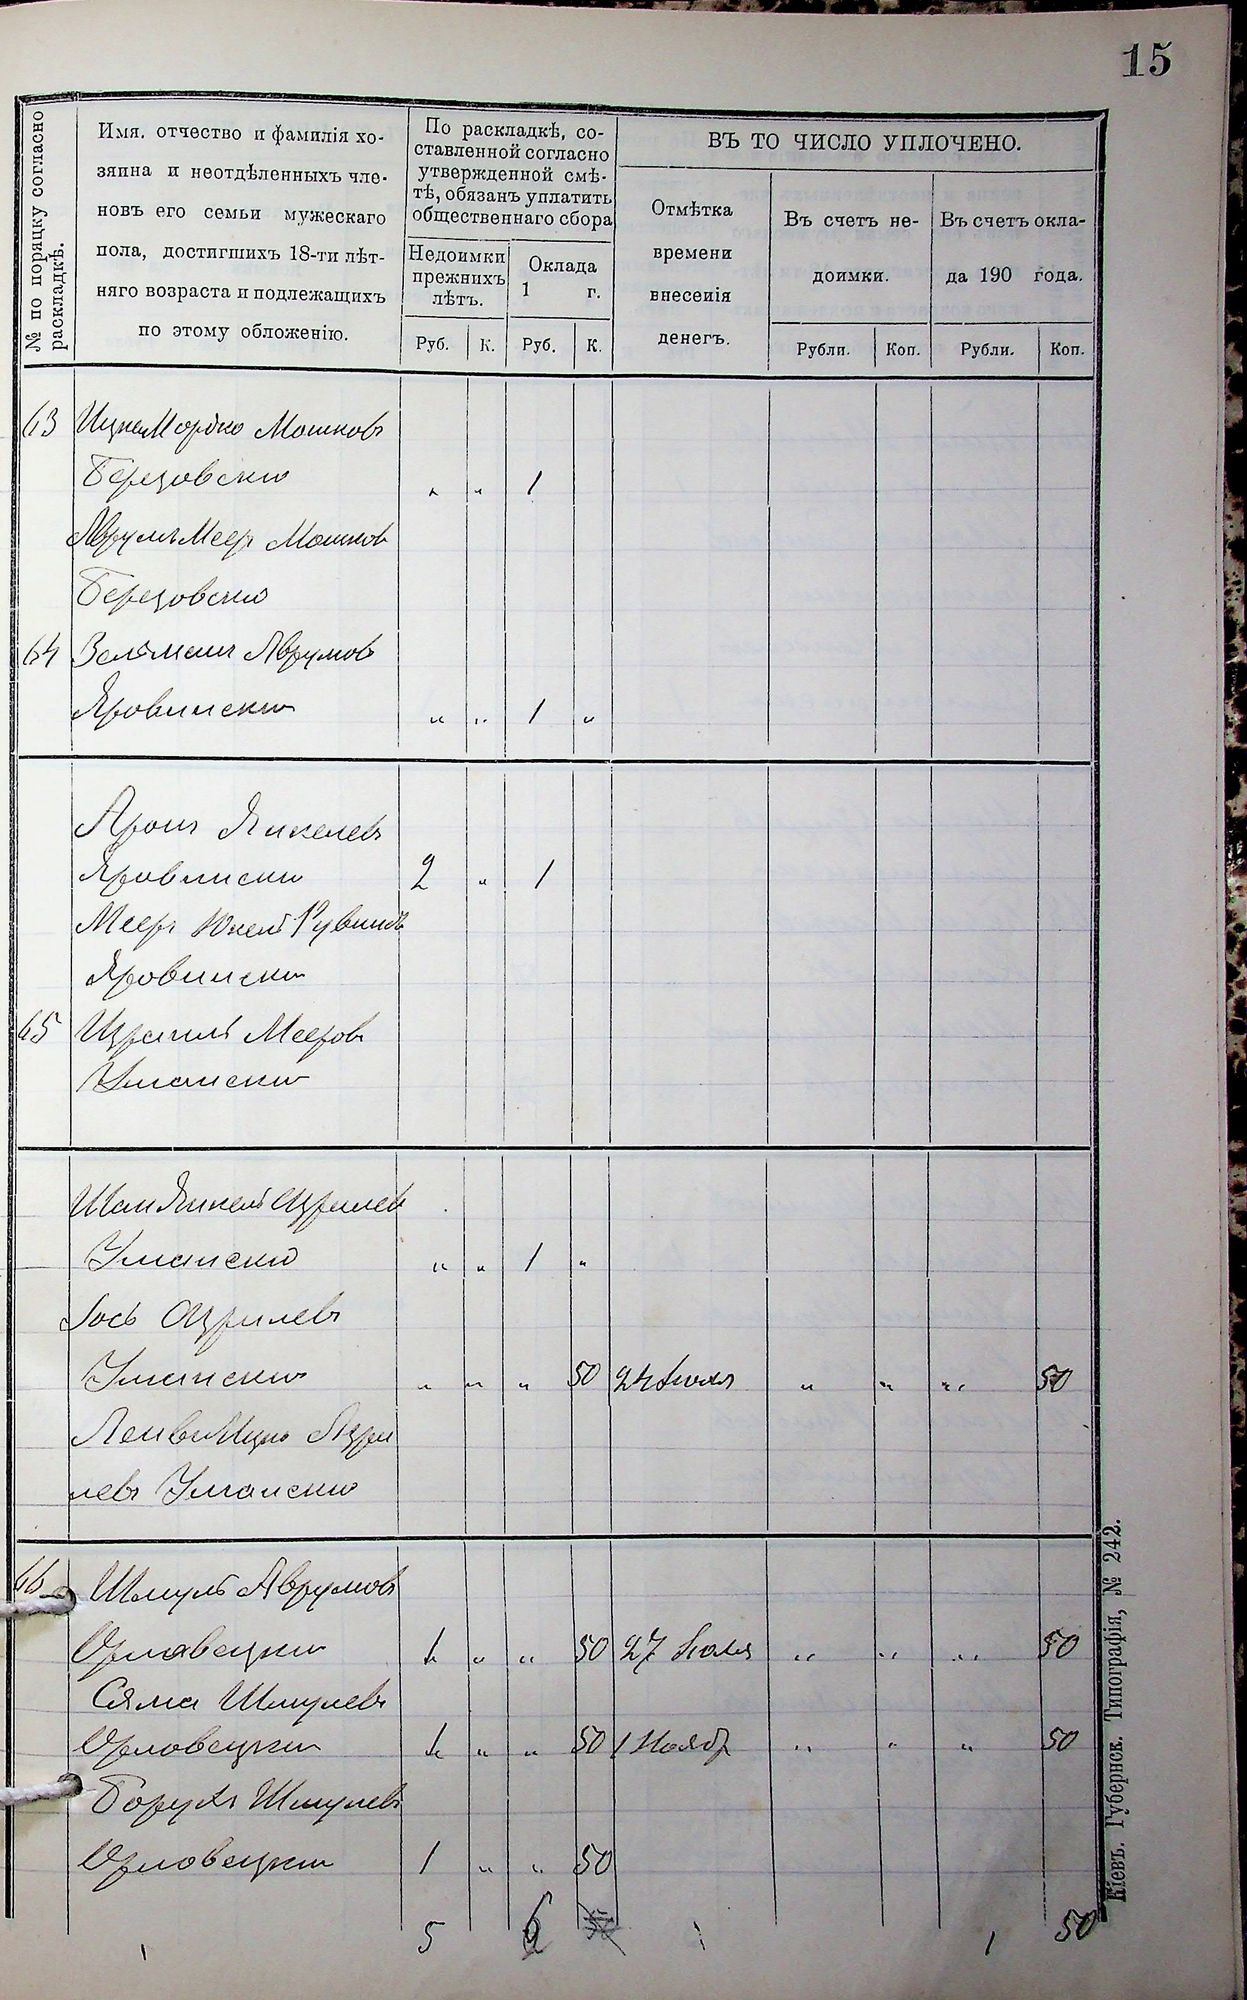 15
№ по поряцку согласно
раскладкѣ.
Имя. отчество и фамилія хо-
зяина и неотдѣленныхъ чле-
новъ его семьи мужескаго
пола, достигшихъ 18-ти лѣт-
няго возраста и подлежащихъ
по этому обложенію.
По раскладкѣ, со-
ставленной согласно
утвержденной смѣ-
тѣ, обязанъ уплатить
общественнаго сбора
Недоимки
прежнихъ
лѣтъ.
Оклада
1 г.
Руб. К. Руб. К.
ВЪ ТО ЧИСЛО УПЛОЧЕНО.
Отмѣтка
времени
внесенія
денегъ.
Въ счетъ не-
доимки.
Въ счетъ окла-
да 190 года.
Рубли. Коп. Рубли. Коп.
63 Ицко Мордко Мошковъ
Березовскій " " 1
Аврумъ Меер Мошков
Березовскій
64 Зельманъ Аврумовъ
Яровинскій " " 1 "
Аронъ Янкелевъ
Яровинскій 2 " 1
Меер Юкель Рувиновъ
Яровинскій
65 Израиль Мееровъ
Уманскій
Янкель Израилев
Уманскій " " 1 "
Іось Израилевъ
Уманскій " " " 50 24 Іюля " " " 50
Изра
левъ Уманскій
66 Шмуль Аврумовъ
Орловецкій 1 " " 50 27 Іюля " " " 50
Сяма Шмулевъ
Орловецкій 1 " " 50 1 Нояб " " " 50
Борухъ Шмулевъ
Орловецкій 1 " " 50
5 6 1 50
Кіевъ. Губернск. Типографія, № 242.